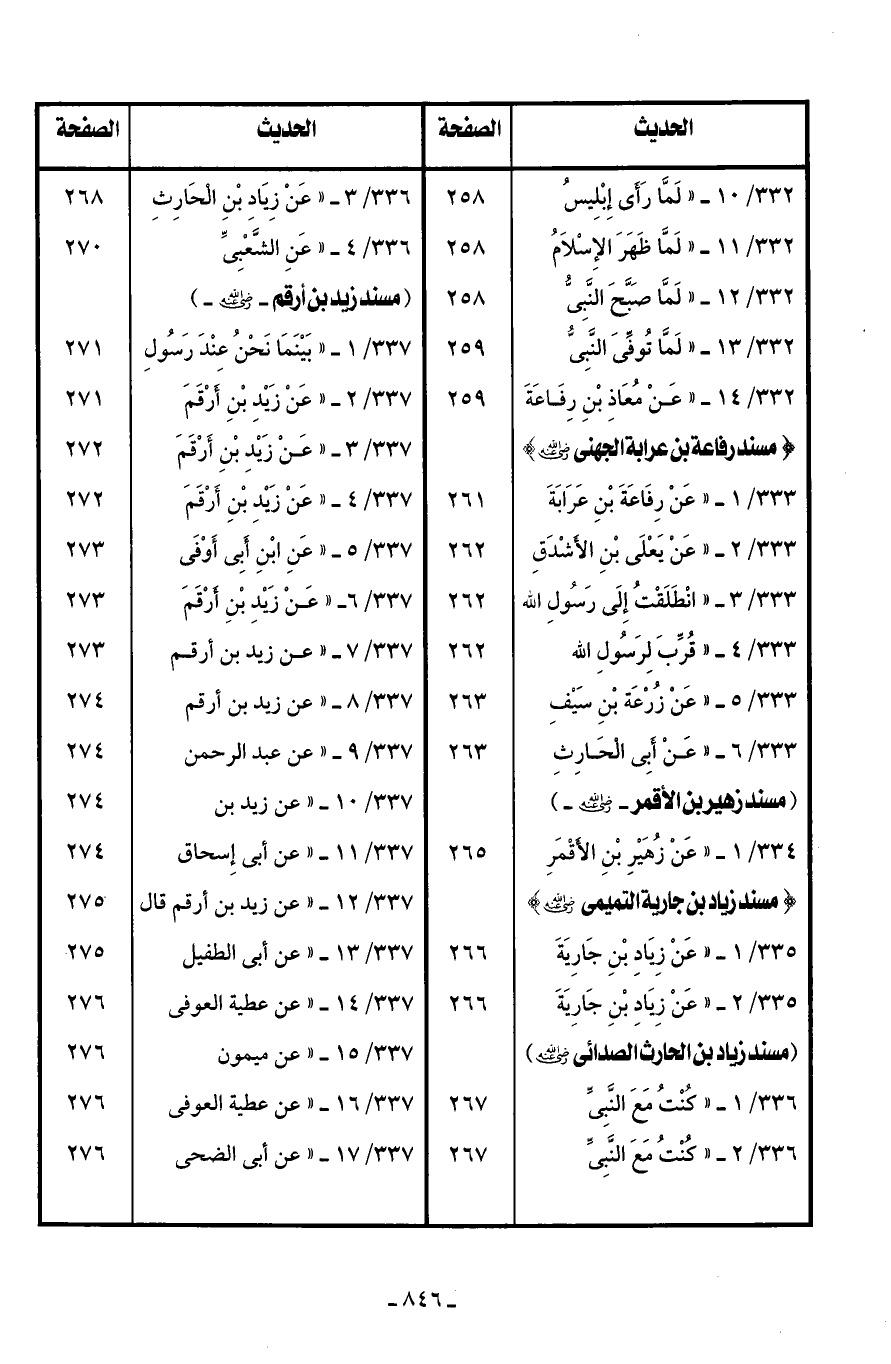 الحديث الصفحة
٣٣٢/ ١٠ ـ « لَمَّا رَأَى إِبْلِيسُ ٢٥٨
٣٣٢/ ١١ ـ « لَمَّا ظَهَرَ الإِسْلاَمُ ٢٥٨
٣٣٢/ ١٢ ـ « لَمَّا صَبَّحَ النَّبِىُّ ٢٥٨
٣٣٢/ ١٣ ـ « لَمَّا تُوفِّىَ النَّبِىُّ ٢٥٩
٣٣٢/ ١٤ ـ « عَـنْ مُعَاذِ بْنِ رِفَـاعَةَ ٢٥٩
﴿ مسند رفاعة بن عرابة الجهنى رضي الله عنه ﴾
٣٣٣/ ١ ـ « عَنْ رِفَاعَةَ بْنِ عَرَابَةَ ٢٦١
٣٣٣/ ٢ ـ « عَنْ يَعْلَى بْنِ الأَشْدَقِ ٢٦٢
٣٣٣/ ٣ ـ « انْطَلَقْتُ إِلَى رَسُولِ الله ٢٦٢
٣٣٣/ ٤ ـ « قُرِّبَ لِرَسُولِ الله ٢٦٢
٣٣٣/ ٥ ـ « عَنْ زُرْعَة بْنِ سَيْفِ ٢٦٣
٣٣٣/ ٦ ـ « عَـنْ أَبِى الْحَـارِثِ ٢٦٣
( مسند زهير بن الأقمر ـ رضي الله عنه ـ )
٣٣٤/ ١ ـ « عَنْ زُهَيْرِ بْنِ الأَقْمَرِ ٢٦٥
﴿ مسند زياد بن جارية التميمى رضي الله عنه ﴾
٣٣٥/ ١ ـ « عَنْ زِيَادِ بْنِ جَارِيَةَ ٢٦٦
٣٣٥/ ٢ ـ « عَنْ زِيَادِ بْنِ جَارِيَةَ ٢٦٦
(مسند زياد بن الحارث الصدائى رضي الله عنه )
٣٣٦/ ١ ـ « كُنْتُ مَعَ النَّبِىِّ ٢٦٧
٣٣٦/ ٢ ـ « كُنْتُ مَعَ النَّبِىِّ ٢٦٧
الحديث الصفحة
٣٣٦/ ٣ ـ « عَنْ زِيَادِ بْنِ الْحَارِثِ ٢٦٨
٣٣٦/ ٤ ـ « عَنِ الشَّعْبِىِّ ٢٧٠
( مسند زيد بن أرقم ـ رضي الله عنه ـ )
٣٣٧/ ١ ـ « بَيْنَمَا نَحْنُ عِنْدَ رَسُولِ ٢٧١
٣٣٧/ ٢ ـ « عَنْ زَيْدِ بْنِ أَرْقَمَ ٢٧١
٣٣٧/ ٣ ـ « عَـنْ زَيْدِ بْنِ أَرْقَمَ ٢٧٢
٣٣٧/ ٤ ـ « عَنْ زَيْدِ بْنِ أَرْقَمَ ٢٧٢
٣٣٧/ ٥ ـ « عَنِ ابْنِ أَبِى أَوْفَى ٢٧٣
٣٣٧/ ٦ـ « عَـنْ زَيْدِ بْنِ أَرْقَمَ ٢٧٣
٣٣٧/ ٧ ـ « عـن زيد بن أرقـم ٢٧٣
٣٣٧/ ٨ ـ « عن زيد بن أرقم ٢٧٤
٣٣٧/ ٩ ـ « عن عبد الرحمن ٢٧٤
٣٣٧/ ١٠ ـ « عن زيد بن ٢٧٤
٣٣٧/ ١١ ـ « عن أبى إسحاق ٢٧٤
٣٣٧/ ١٢ ـ « عن زيد بن أرقم قال ٢٧٥
٣٣٧/ ١٣ ـ « عن أبى الطفيل ٢٧٥
٣٣٧/ ١٤ ـ « عن عطية العوفى ٢٧٦
٣٣٧/ ١٥ ـ « عن ميمون ٢٧٦
٣٣٧/ ١٦ ـ « عن عطية العوفى ٢٧٦
٣٣٧/ ١٧ ـ « عن أبى الضحى ٢٧٦
ـ ٨٤٦ ـ